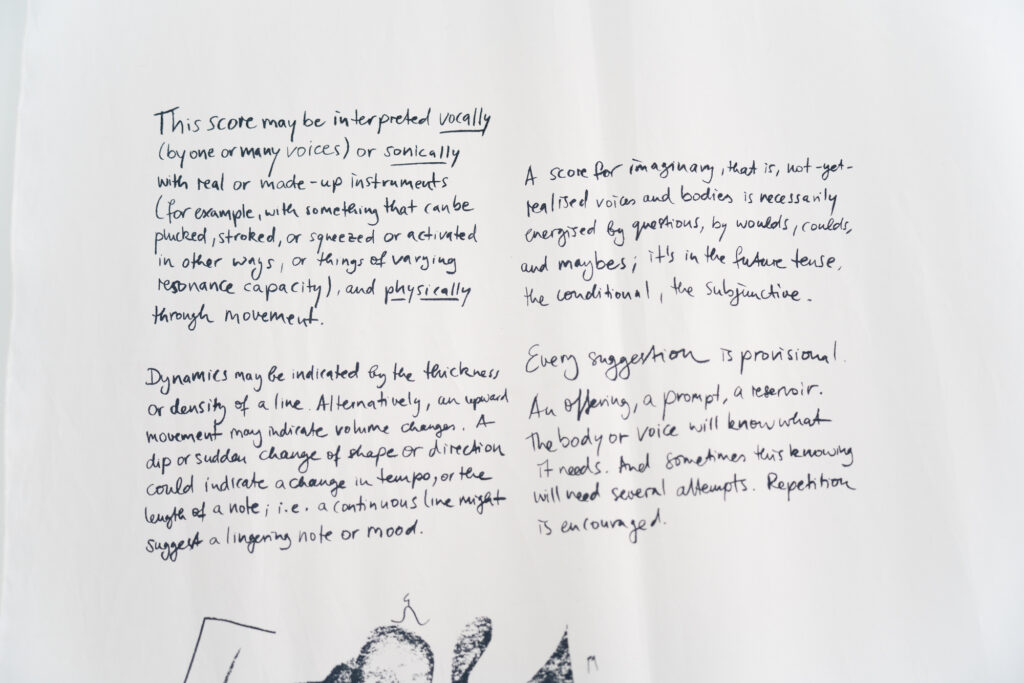 This score may be interpreted vocally
(by one or many voices) or sonically
with real or made-up instruments
(for example, with something that can be
plucked, stroked, or squeezed or activated
in other ways, or things of varying
resonance capacity), and physically
through movement.
Dynamics may be indicated by the thickness
or density of a line. Alternatively, an upward
movement may indicate volume changes. A
dip or sudden change of shape or direction
could indicate a change in tempo, or the
length of a note; i.e. a continuous line might
suggest a lingering note or mood.
A score for imaginary, that is, not-yet-
realised voices and bodies is necessarily
energised by questions, by woulds, coulds,
and maybes; it's in the future tense,
the conditional, the subjunctive.
Every suggestion is provisional.
An offering, a prompt, a reservoir.
The body or voice will know what
it needs. And sometimes this knowing
will need several attempts. Repetition
is encouraged.